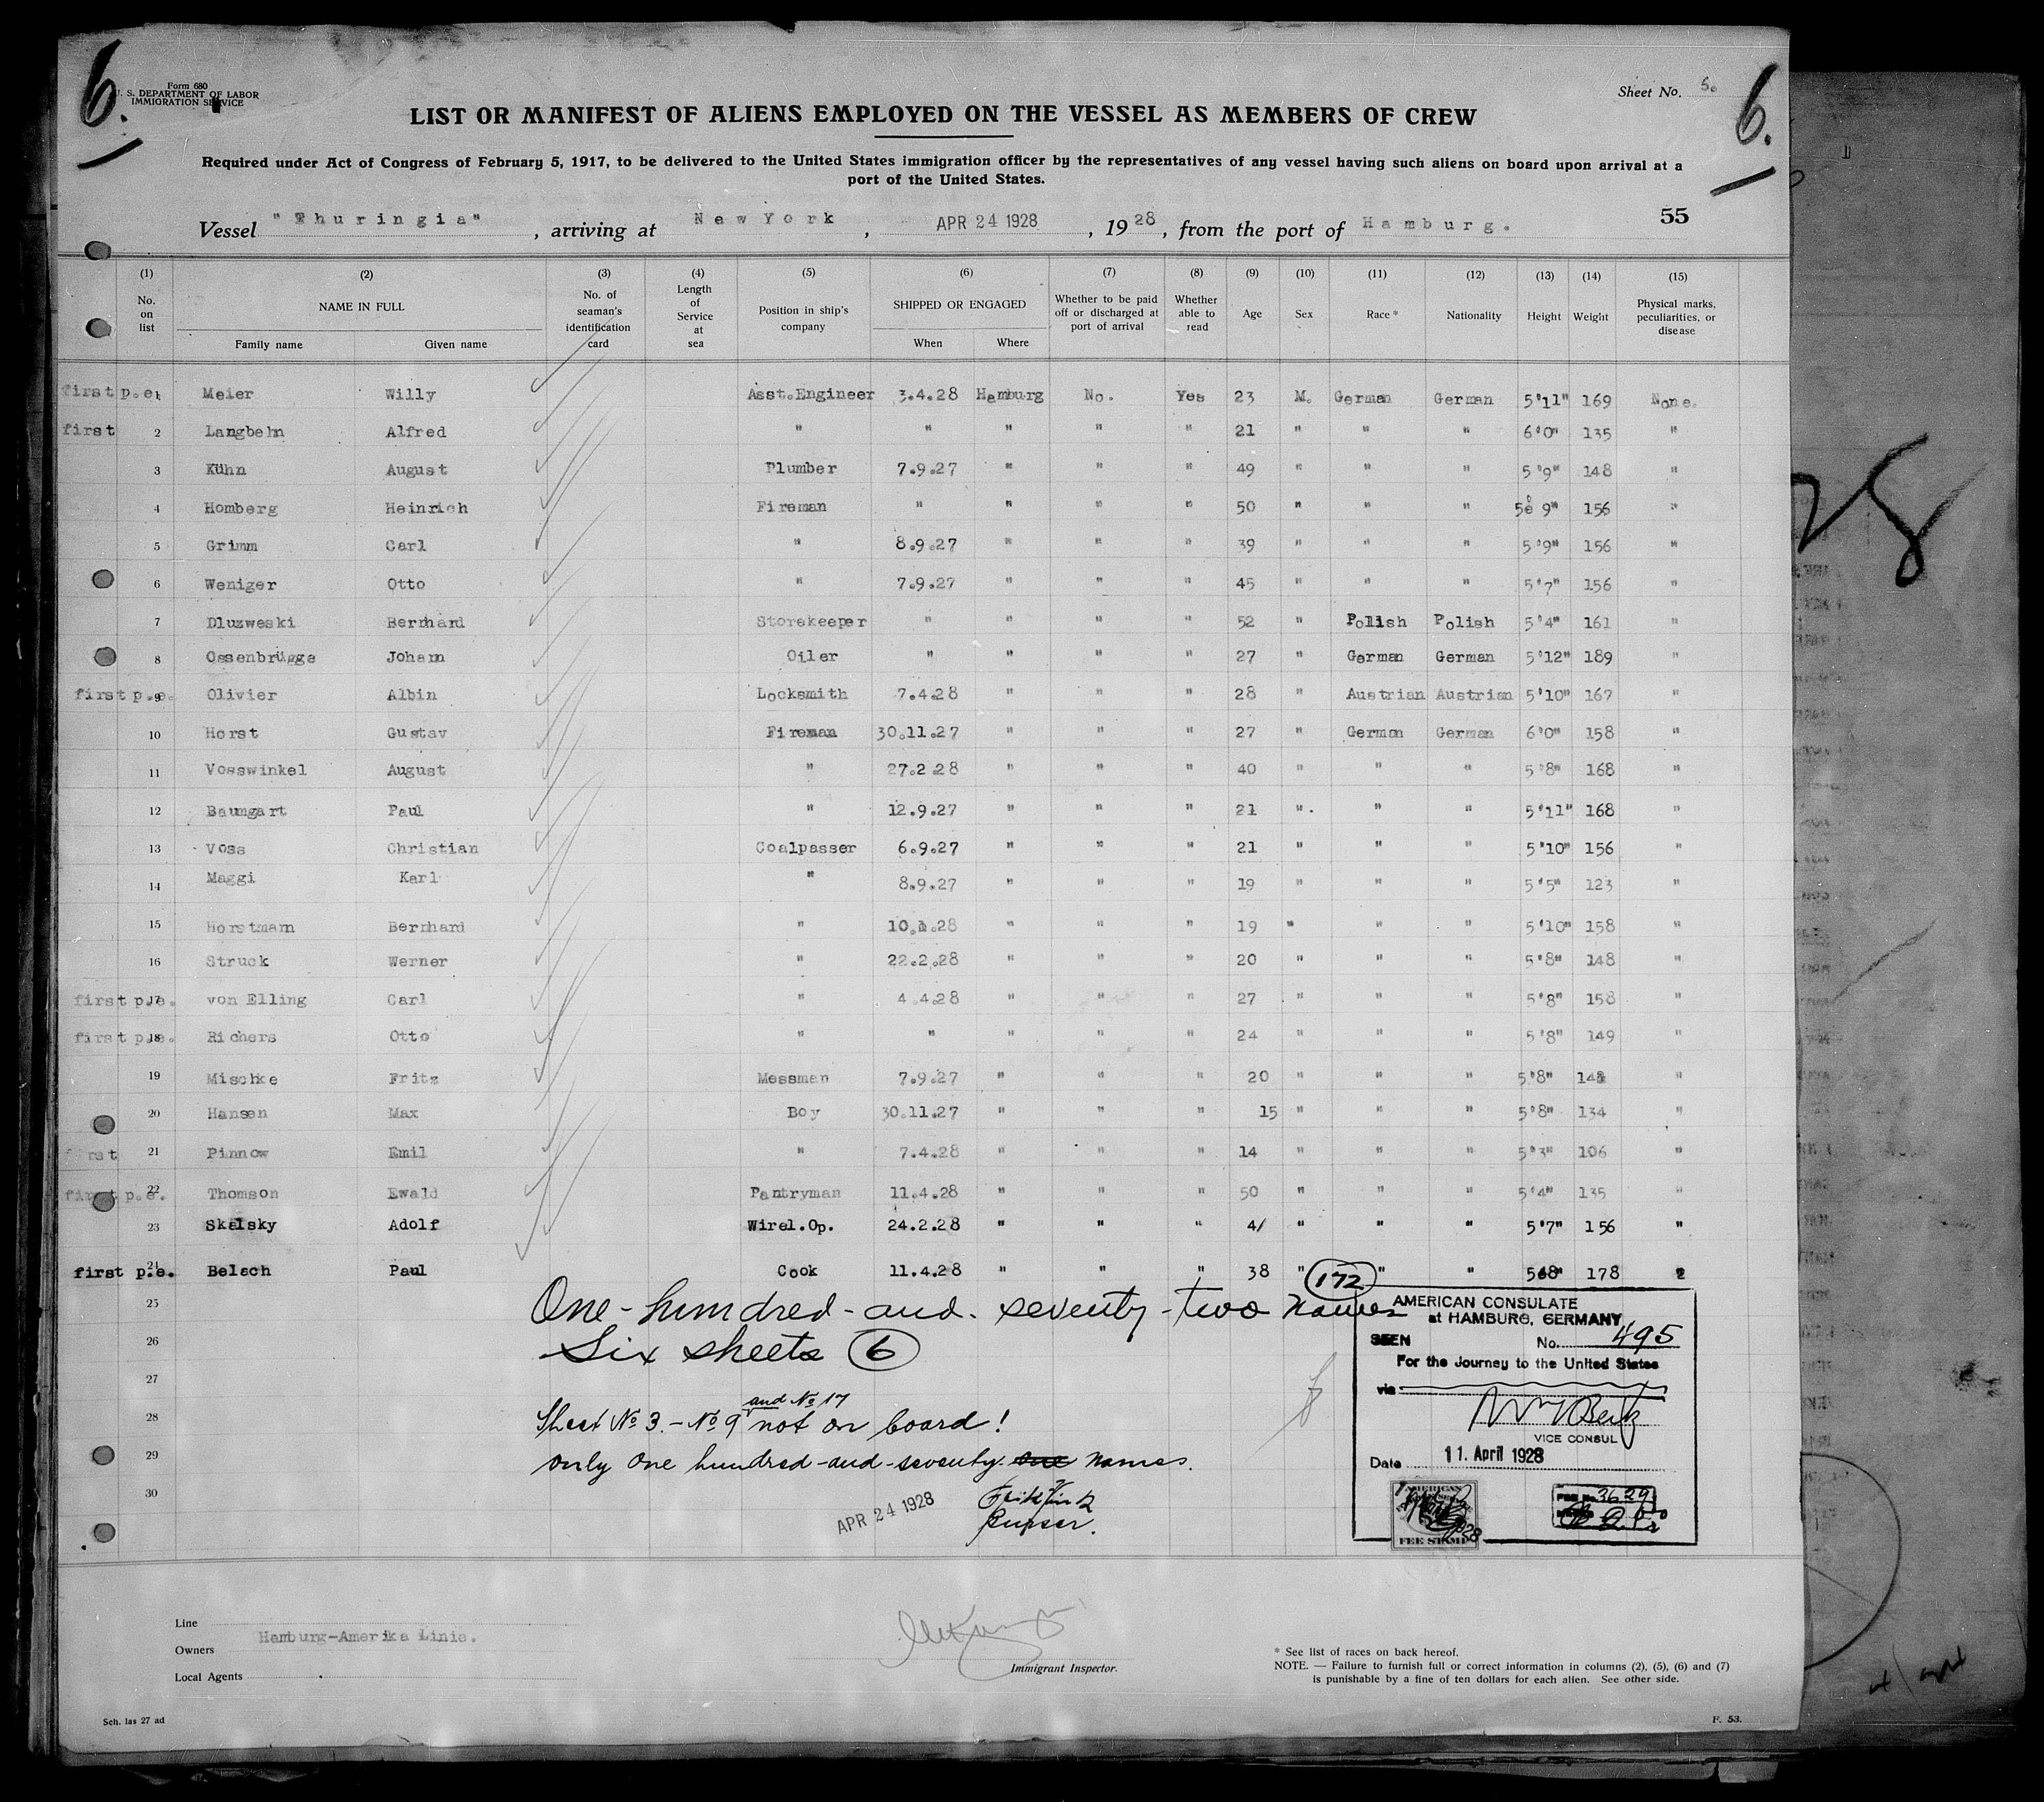 6.
Form 680
U. S. DEPARTMENT OF LABOR
IMMIGRATION SERVICE
Sheet No. 5.
6.
LIST OR MANIFEST OF ALIENS EMPLOYED ON THE VESSEL AS MEMBERS OF CREW
Required under Act of Congress of February 5, 1917, to be delivered to the United States immigration officer by the representatives of any vessel having such aliens on board upon arrival at a
port of the United States.
Vessel "Thuringia", arriving at New York, APR 24 1928, 1928, from the port of Hamburg. 55
(1) (2) (3) (4) (5) (6) (7) (8) (9) (10) (11) (12) (13) (14) (15)
No. on list NAME IN FULL Family name Given name No. of seaman's identification card Length of Service at sea Position in ship's company SHIPPED OR ENGAGED When Where Whether to be paid off or discharged at port of arrival Whether able to read Age Sex Race * Nationality Height Weight Physical marks, peculiarities, or disease
first p.e. 1 Meier Willy Asst.Engineer 3.4.28 Hamburg No. Yes 23 M. German German 5'11" 169 None.
first 2 Langbehn Alfred " " " " " 21 " " " 6'0" 135 "
3 Kühn August Plumber 7.9.27 " " " 49 " " " 5'9" 148 "
4 Homberg Heinrich Fireman " " " " 50 " " " 5' 9" 156 "
5 Grimm Carl " 8.9.27 " " " 39 " " " 5'9" 156 "
6 Weniger Otto " 7.9.27 " " " 45 " " " 5'7" 156 "
7 Dluzweski Bernhard Storekeeper " " " " 52 " Polish Polish 5'4" 161 "
8 Ossenbrügge Johann Oiler " " " " 27 " German German 5'12" 189 "
first p.e. 9 Olivier Albin Locksmith 7.4.28 " " " 28 " Austrian Austrian 5'10" 167 "
10 Horst Gustav Fireman 30.11.27 " " " 27 " German German 6'0" 158 "
11 Vosswinkel August " 27.2.28 " " " 40 " " " 5'8" 168 "
12 Baumgart Paul " 12.9.27 " " " 21 " " " 5'11" 168 "
13 Voss Christian Coalpasser 6.9.27 " " " 21 " " " 5'10" 156 "
14 Maggi Karl " 8.9.27 " " " 19 " " " 5'5" 123 "
15 Horstmann Bernhard " " " " 19 " " " 5'10" 158 "
16 Struck Werner " 22.2.28 " " " 20 " " " 5'8" 148 "
first p.e. 17 von Elling Carl " 4.4.28 " " " 27 " " " 5'8" 158 "
first p.e. 18 Richers Otto " " " " " 24 " " " 5'8" 149 "
19 Mischke Fritz Messman 7.9.27 " " " 20 " " " 5'8" "
20 Hansen Max Boy 30.11.27 " " " 15 " " " 5'8" 134 "
first 21 Pinnow Emil " 7.4.28 " " " 14 " " " 5'3" 106 "
first p.e. 22 Thomson Ewald Pantryman 11.4.28 " " " 50 " " " 5'4" 135 "
23 Skalsky Adolf Wirel.Op. 24.2.28 " " " 41 " " " 5'7" 156 "
first p.e. 24 Belach Paul Cook 11.4.28 " " " 38 " " " 5'8" 178 "
25
26
27
28
29
30
172
One-hundred-and-seventy-two names
Six sheets 6
Sheet No 3.- No 9 and No 17 not on board!
only one hundred-and-seventy one names.
Purser.
APR 24 1928
AMERICAN CONSULATE
at HAMBURG, GERMANY
SEEN No. 495
For the Journey to the United States
via
VICE CONSUL
Date 11. April 1928
AMERICAN
FEE STAMP
FEE No. 3629
Line
Owners Hamburg-Amerika Linie.
Local Agents
Immigrant Inspector.
* See list of races on back hereof.
NOTE. — Failure to furnish full or correct information in columns (2), (5), (6) and (7)
is punishable by a fine of ten dollars for each alien. See other side.
Sch. las 27 ad
F. 53.